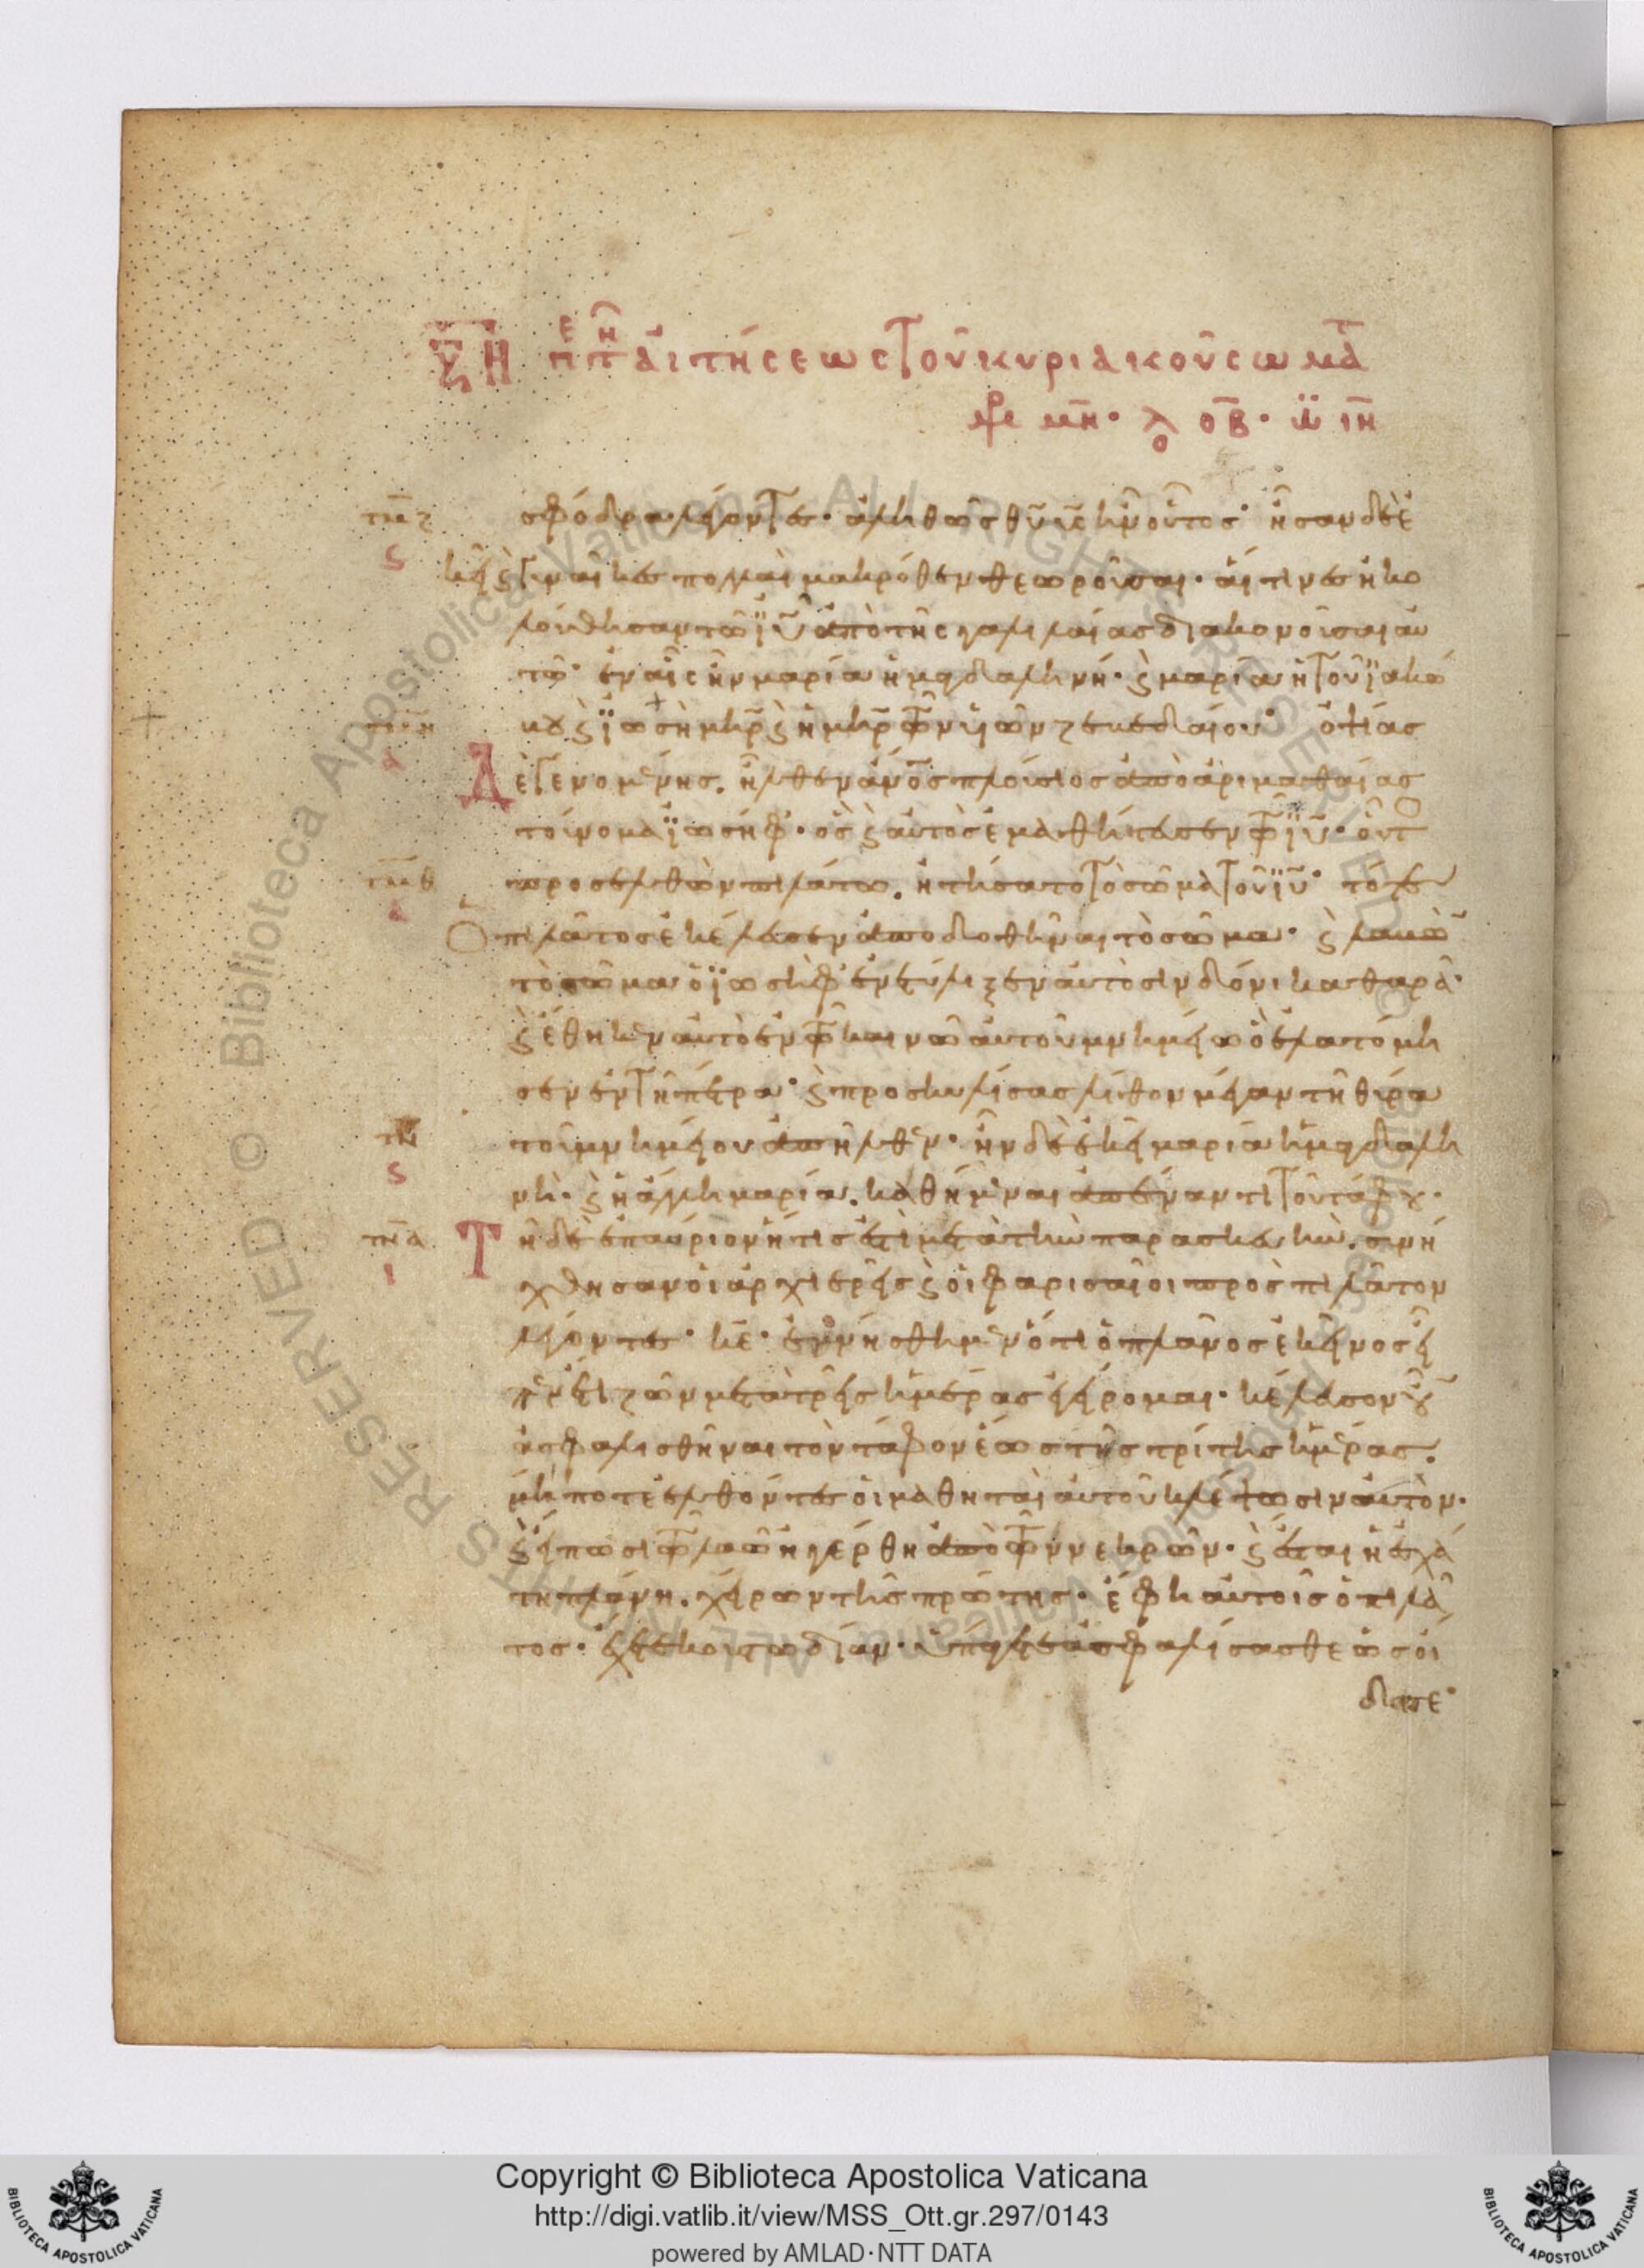 ξη περὶ τῆς αἰτήσεως τοῦ κυριακοῦ σώματ
μρ μη· λο οβ· ιω ιη
τμζ σφόδρα λέγοντες· ἀληθῶς θῦ υἱὸς ἦν οὗτος· ἦσαν δὲ ἐ
ς κεῖ ϗ γυναῖκες πολλαὶ μακρόθεν θεωροῦσαι· αἵτινες ἠκο
λούθησαν τῶ ἰῦ ἀπὸ τῆς γαλιλαίας διακονοῦσαι αὐ
τῶ· ἐν αἷς ἦν μαρία ἡ μαγδαληνή· ϗ μαρία ἡ τοῦ ἰακώ
τμη κου ϗ ἰωσὴ μηρ ϗ ἡ μηρ τῶν υἱῶν ζεβεδαίου· ὀψίας
α Δὲ γενομένης. ἦλθεν ἄνος πλούσιος ἀπὸ ἀριμαθαίας
τοὔνομα ἰωσήφ· ὃς ϗ αὐτὸς ἐμαθήτευσεν τῶ ἰῦ· οὗτο
τμθ προσελθὼν πιλάτω. ἠτήσατο τὸ σῶμα τοῦ ἰῦ· τότε
Ὁ πιλᾶτος ἐκέλευσεν ἀποδοθῆναι τὸ σῶμα· ϗ λαβὼ
τὸ σῶμα ὁ ἰωσὴφ ἐνετύλιξεν αὐτὸ σινδόνι καθαρᾶ·
ϗ ἔθηκεν αὐτὸ ἐν τῶ καινῶ αὐτοῦ μνημείω ὃ ἐλατόμη
σεν ἐν τῆ πέτρα· ϗ προσκυλίσας λίθον μέγαν τῆ θύρα
τν τοῦ μνημείου ἀπῆλθεν· ἦν δὲ ἐκεῖ μαρία ἡ μαγδαλη
ς νὴ· ϗ ἡ ἄλλη μαρία. καθήμεναι ἀπέναντι τοῦ τάφου·
τνα Τῆ δὲ ἐπαύριον ἥτις ἐστὶ μετὰ τὴν παρασκευὴν. συνή
ι χθησαν οἱ ἀρχιερεῖς ϗ οἱ φαρισαῖοι πρὸς πιλᾶτον
λέγοντες· κε· ἐμνήσθημεν ὅτι ὁ πλάνος ἐκεῖνος εἶ
πεν ἔτι ζῶν μετὰ τρεῖς ἡμέρας ἐγείρομαι· κέλευσον οὖ
ἀσφαλισθῆναι τὸν τάφον ἕως τῆς τρίτης ἡμέρας.
μήποτε ἐλθόντες οἱ μαθηταὶ αὐτοῦ κλέψωσιν αὐτὸν·
ϗ εἴπωσι τῶ λαῶ ἠγέρθη ἀπὸ τῶν νεκρῶν· ϗ ἔσται ἡ ἐσχά
τη πλάνη. χείρων τῆς πρώτης· ἔφη αὐτοῖς ὁ πιλᾶ
τος· ἔχετε κουστωδίαν· ὑπάγετε ἀσφαλίσασθε ὡς οἴ
δατε·
Copyright © Biblioteca Apostolica Vaticana
http://digi.vatlib.it/view/MSS_Ott.gr.297/0143
powered by AMLAD·NTT DATA